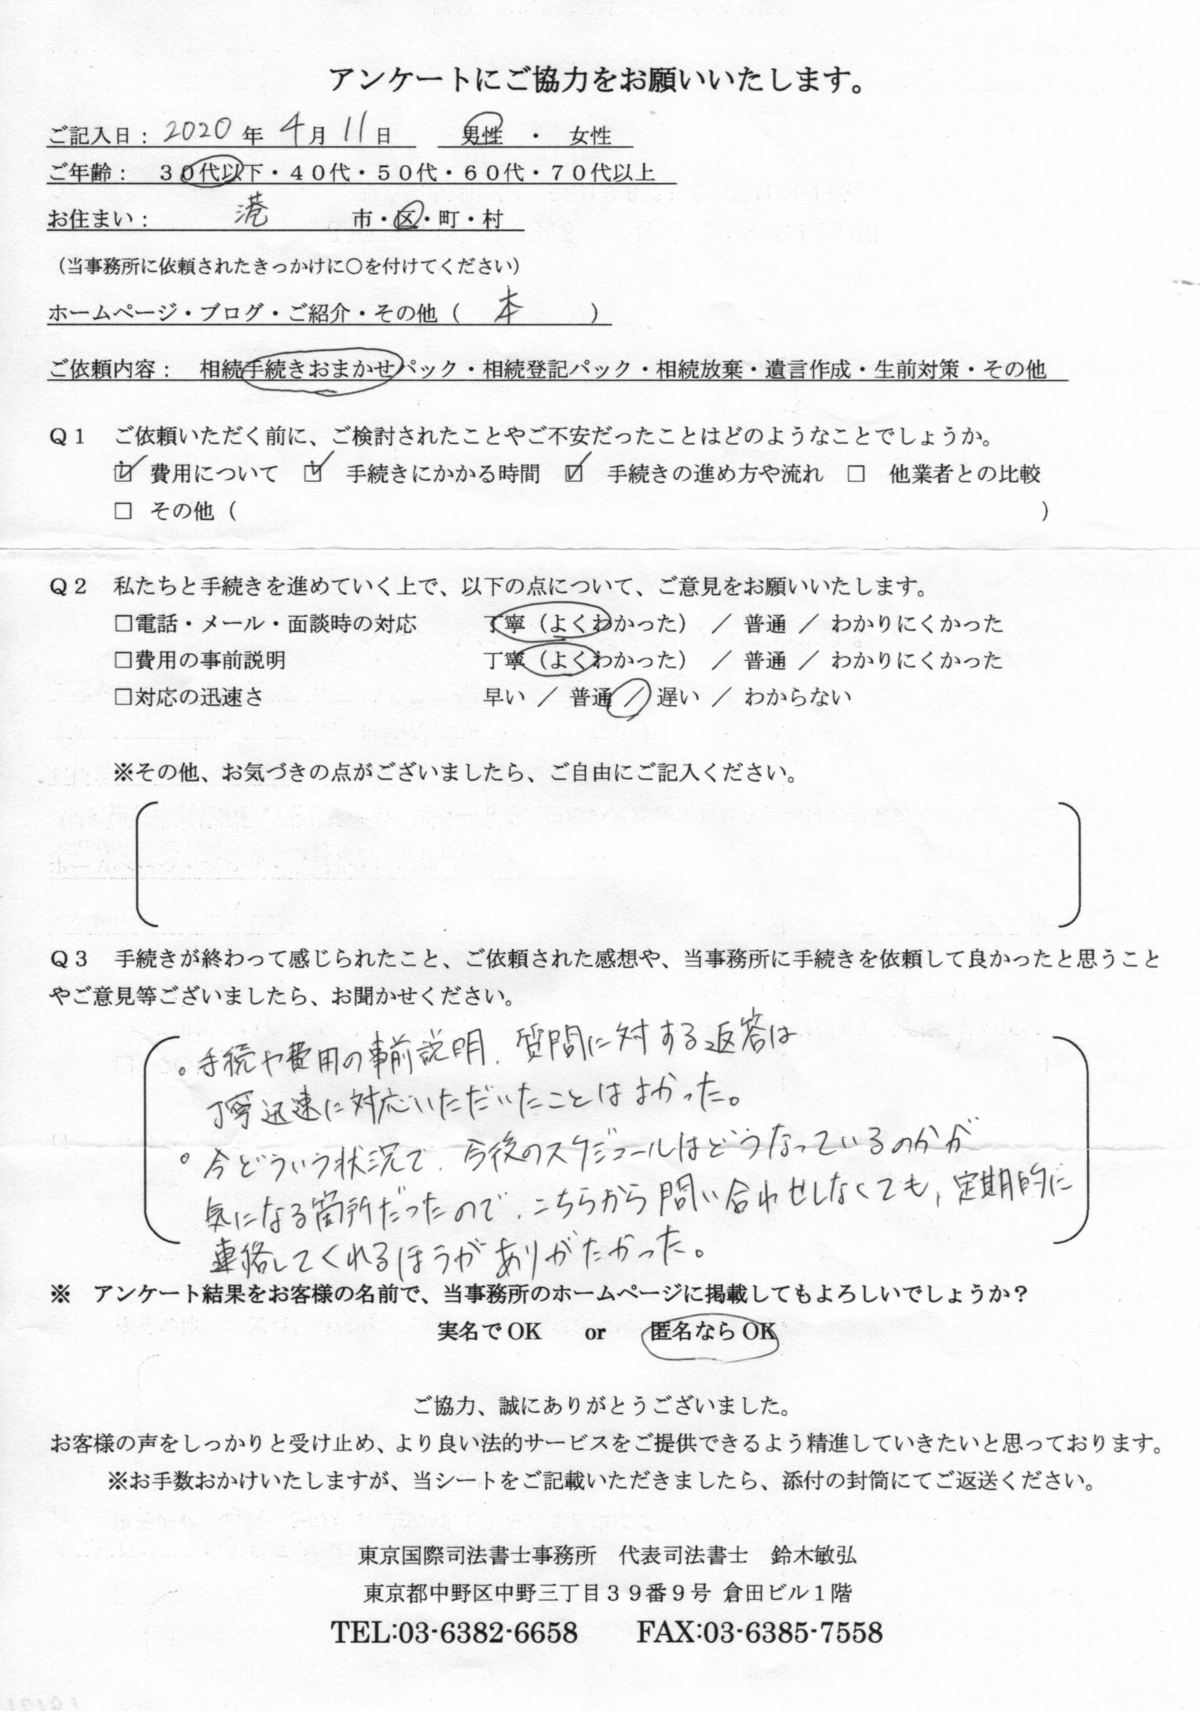 アンケートにご協力をお願いいたします。
ご記入日： 2020 年 4 月 11 日　男性 ・ 女性
ご年齢：　３０代以下・４０代・５０代・６０代・７０代以上
お住まい：　港　市・区・町・村
（当事務所に依頼されたきっかけに〇を付けてください）
ホームページ・ブログ・ご紹介・その他（　本　）
ご依頼内容：　相続手続きおまかせパック・相続登記パック・相続放棄・遺言作成・生前対策・その他
Ｑ１　ご依頼いただく前に、ご検討されたことやご不安だったことはどのようなことでしょうか。
☑ 費用について ☑ 手続きにかかる時間 ☑ 手続きの進め方や流れ □ 他業者との比較
□ その他（　）
Ｑ２　私たちと手続きを進めていく上で、以下の点について、ご意見をお願いいたします。
□電話・メール・面談時の対応　丁寧（よくわかった） ／ 普通 ／ わかりにくかった
□費用の事前説明　丁寧（よくわかった） ／ 普通 ／ わかりにくかった
□対応の迅速さ　早い ／ 普通 ／ 遅い ／ わからない
※その他、お気づきの点がございましたら、ご自由にご記入ください。
Ｑ３　手続きが終わって感じられたこと、ご依頼された感想や、当事務所に手続きを依頼して良かったと思うこと
やご意見等ございましたら、お聞かせください。
。手続や費用の事前説明、質問に対する返答は
丁寧迅速に対応いただいたことはよかった。
。今どういう状況で、今後のスケジュールはどうなっているのかが
気になる箇所だったので、こちらから問い合わせしなくても、定期的に
連絡してくれるほうがありがたかった。
※　アンケート結果をお客様の名前で、当事務所のホームページに掲載してもよろしいでしょうか？
実名でOK　or　匿名ならOK
ご協力、誠にありがとうございました。
お客様の声をしっかりと受け止め、より良い法的サービスをご提供できるよう精進していきたいと思っております。
※お手数おかけいたしますが、当シートをご記載いただきましたら、添付の封筒にてご返送ください。
東京国際司法書士事務所　代表司法書士　鈴木敏弘
東京都中野区中野三丁目３９番９号 倉田ビル１階
TEL:03-6382-6658　FAX:03-6385-7558